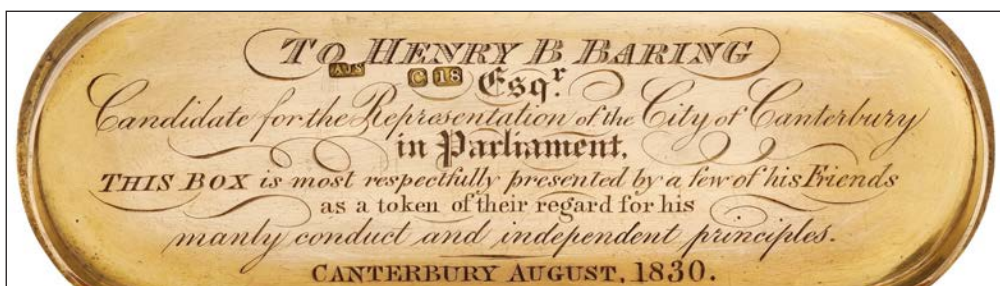 TO HENRY B BARING
AJS C 18
Esqr.
Candidate for the Representation of the City of Canterbury
in Parliament,
THIS BOX is most respectfully presented by a few of his Friends
as a token of their regard for his
manly conduct and independent principles.
CANTERBURY AUGUST, 1830.